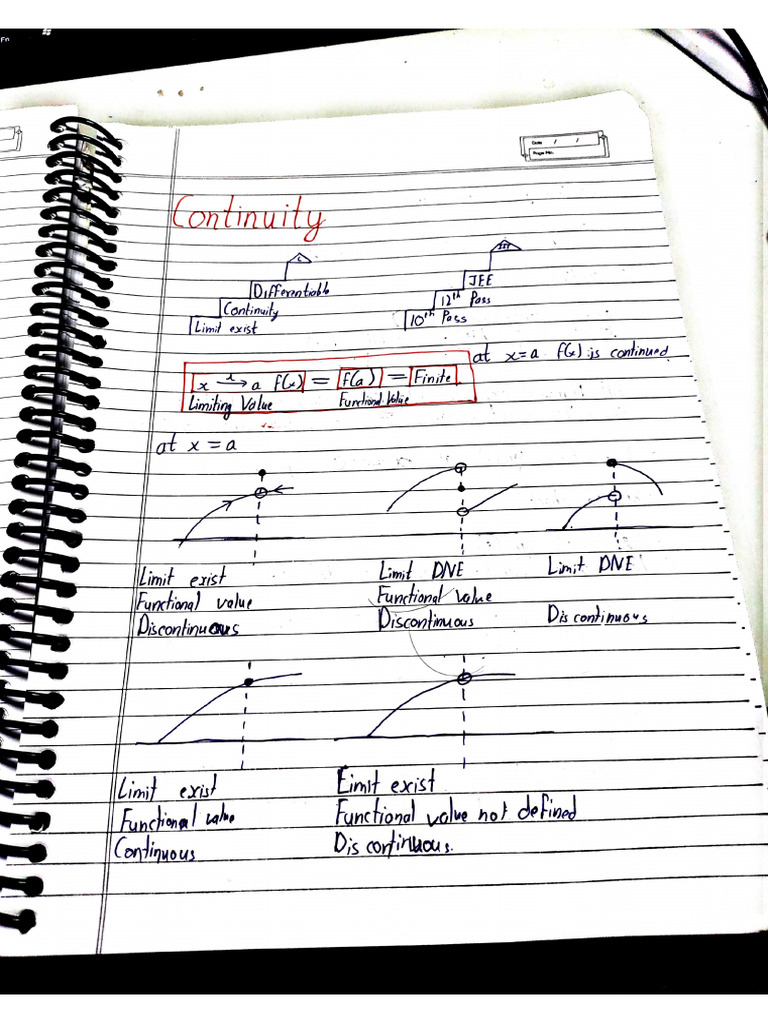 Fn
Date / /
Page No.
Continuity
C
Differentiable
Continuity
Limit exist
IIT
JEE
12th Pass
10th Pass
at x=a f(x) is continued
x → a f(x) = f(a) = Finite
Limiting Value Functional Value
at x = a
Limit exist
Functional value
Discontinuous
Limit DNE
Functional value
Discontinuous
Limit DNE
Discontinuous
Limit exist
Functional value
Continuous
Limit exist
Functional value not defined
Discontinuous.